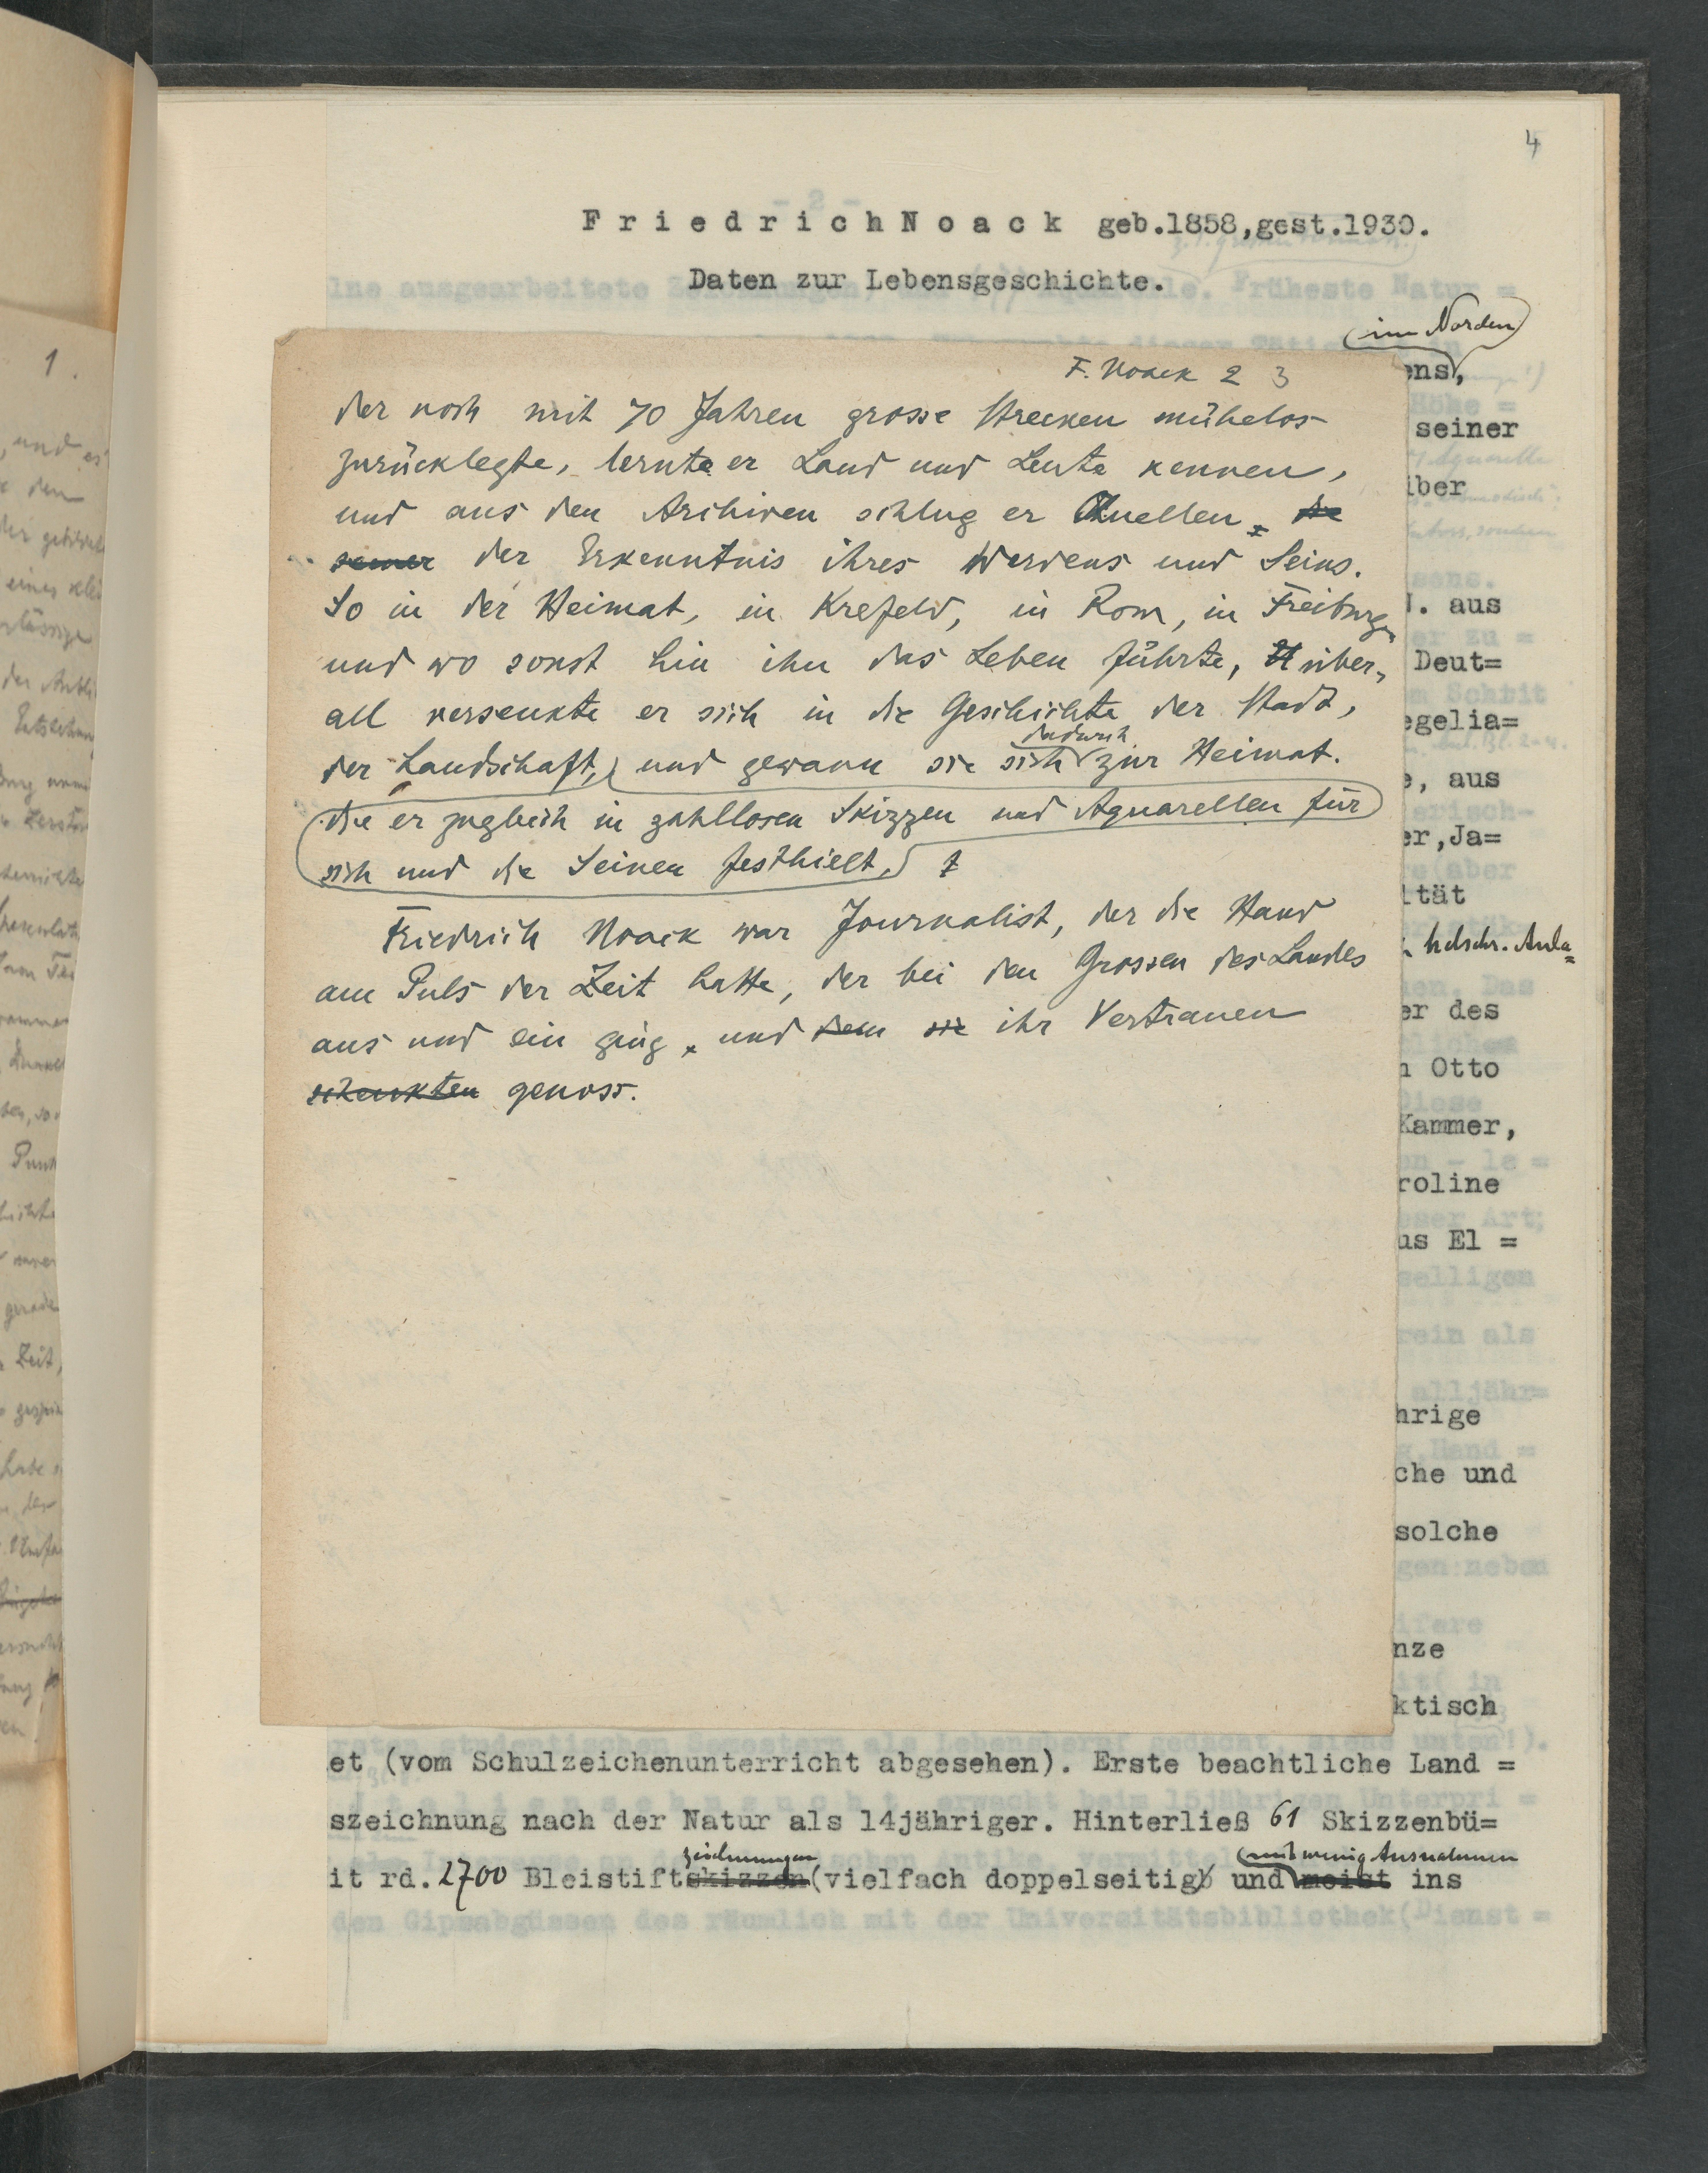 4
F r i e d r i c h N o a c k geb.1858,gest.1930.
Daten zur Lebensgeschichte.
im Norden
F. Noack 2 3
der noch mit 70 Jahren grosse Strecken mühelos
zurücklegte, lernte er Land und Leute kennen,
und aus den Archiven schlug er Quellen die
seiner der Erkenntnis ihres Werdens und Seins.
So in der Heimat, in Krefeld, in Rom, in Freiburg
und wo sonst hin ihn das Leben führte, über-
all versenkte er sich in die Geschichte der Stadt,
dadurch
der Landschaft, und gewann sie sich zur Heimat.
die er zugleich in zahllosen Skizzen und Aquarellen für
sich und die Seinen festhielt,
Friedrich Noack war Journalist, der die Hand
am Puls der Zeit hatte, der bei den Grossen des Landes
aus und ein ging, und dem sie ihr Vertrauen
schenkten genoss.
ens,
seiner
iber
. aus
Deut=
egelia=
e, aus
er,Ja=
ität
hdschr. Anla=
er des
n Otto
Kammer,
roline
us El =
hrige
che und
solche
nze
ktisch
et (vom Schulzeichenunterricht abgesehen). Erste beachtliche Land =
szeichnung nach der Natur als 14jähriger. Hinterließ 61 Skizzenbü=
zeichnungen mit wenig Ausnahmen
it rd. 2700 Bleistiftskizzen (vielfach doppelseitig) und meist ins